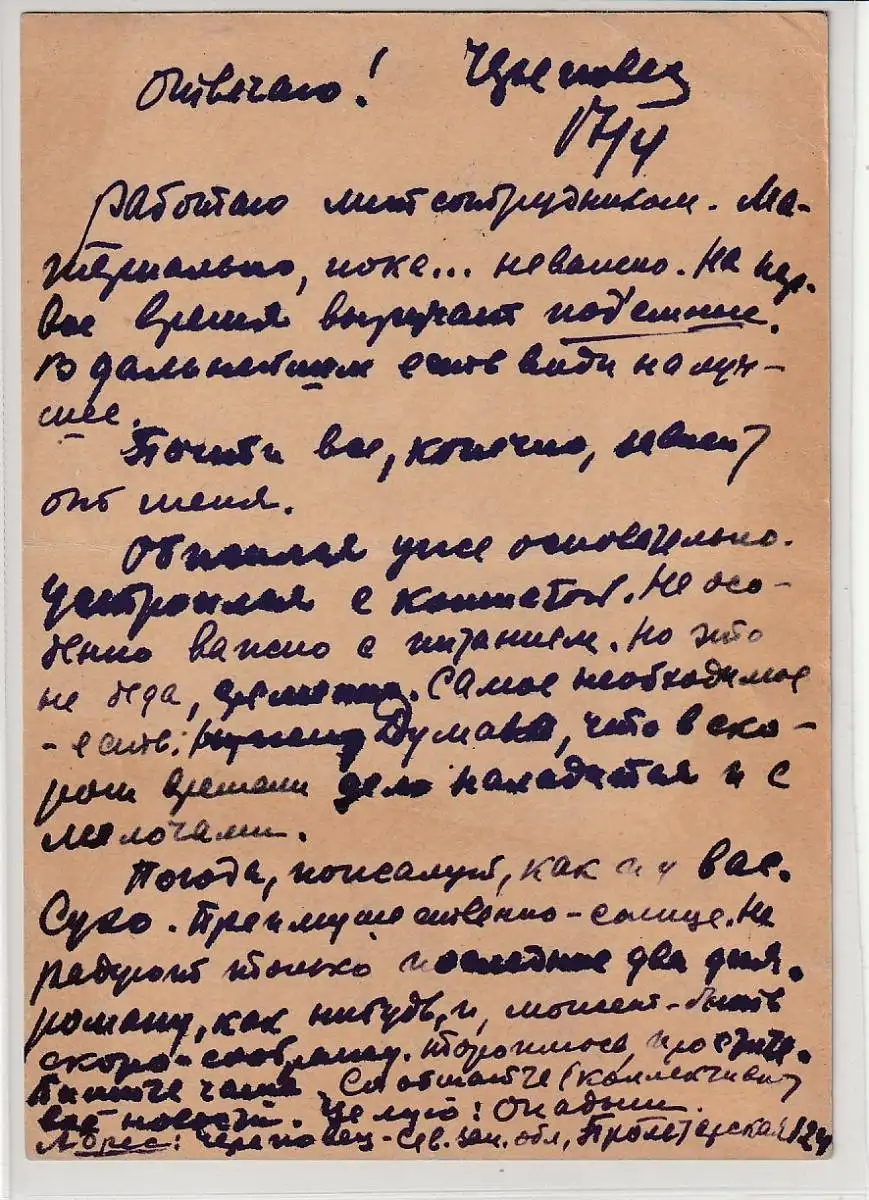 Отвечаю! Череповец
17/4
Работаю литсотрудником. Ма-
териально, пока... неважно. На пер-
вое время выручают под'емные.
В дальнейшем есть виды на луч-
шее.
Почти все, конечно, зависит
от меня.
Обжился уже основательно.
Устроился с комнатой. Не осо-
бенно важно с питанием. Но это
не беда,
Самое необходимое
- есть. Думаю, что в ско-
ром времени дело наладится и с
мелочами.
Погода, пожалуй, как и у вас.
Сухо. Преимущественно - солнце. Не
радуют только последние два дня.
как нибудь, и, может-быть
скоро - соберешь. Тороплюсь, простите.
Пишите чаще. Сообщайте (коллективно)
все новости. Целую!
Адрес: Череповец - Сев. Зап. обл., Пролетарская 124